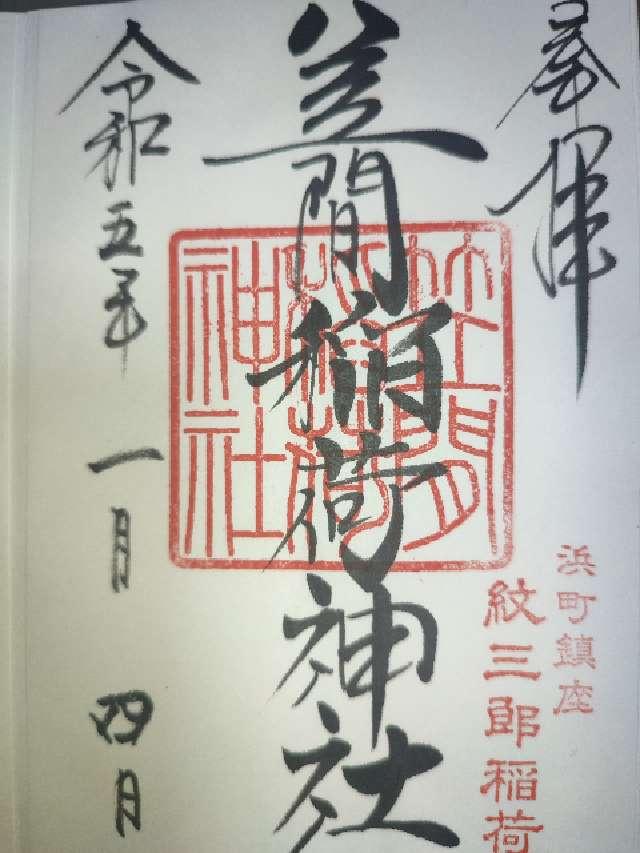 奉拝
浜町鎮座
紋三郎稲荷
笠間稲荷神社
笠間稲荷神社
令和五年一月四月